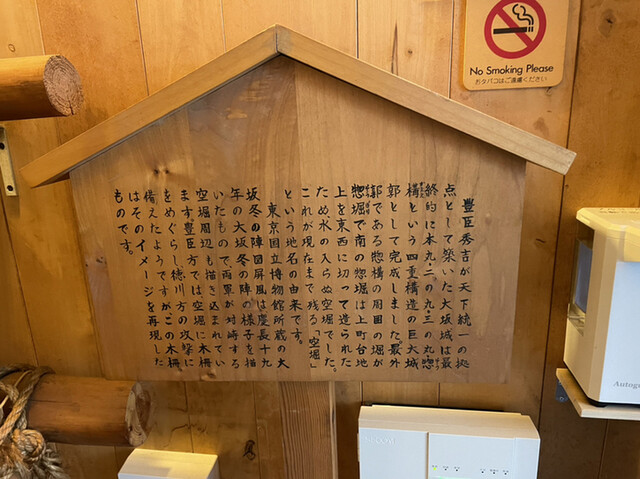 No Smoking Please
おタバコはご遠慮ください
豊臣秀吉が天下統一の拠
点として築いた大坂城は最
終的に本丸・二の丸・三の丸・惣
構という四重構造の巨大城
郭として完成しました。最外
郭である惣構の周囲の堀が
惣堀で南の惣堀は上町台地
上を東西に切って造られた
ため、水の入らぬ空堀でした。
これが現在まで残る「空堀」
という地名の由来です。
東京国立博物館所蔵の大
坂冬の陣図屏風は慶長十九
年の大坂冬の陣の様子を描
いたもので、両軍が対峙する
空堀周辺も描き込まれてい
ます。豊臣方では空堀に木柵
をめぐらし徳川方の攻撃に
備えたようですが、この木柵
はそのイメージを再現した
ものです。